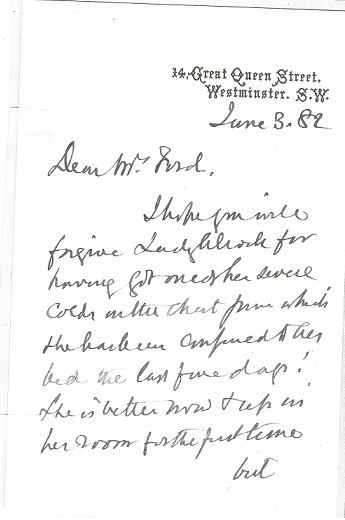 14, Great Queen Street,
Westminster. S.W.
June 3. 82
Dear Mrs Ford,
I hope you will
forgive Lady for
having got one of her severe
colds on the chest from which
she has been confined to her
bed the last five days!
She is better now & up in
her room for the first time
but